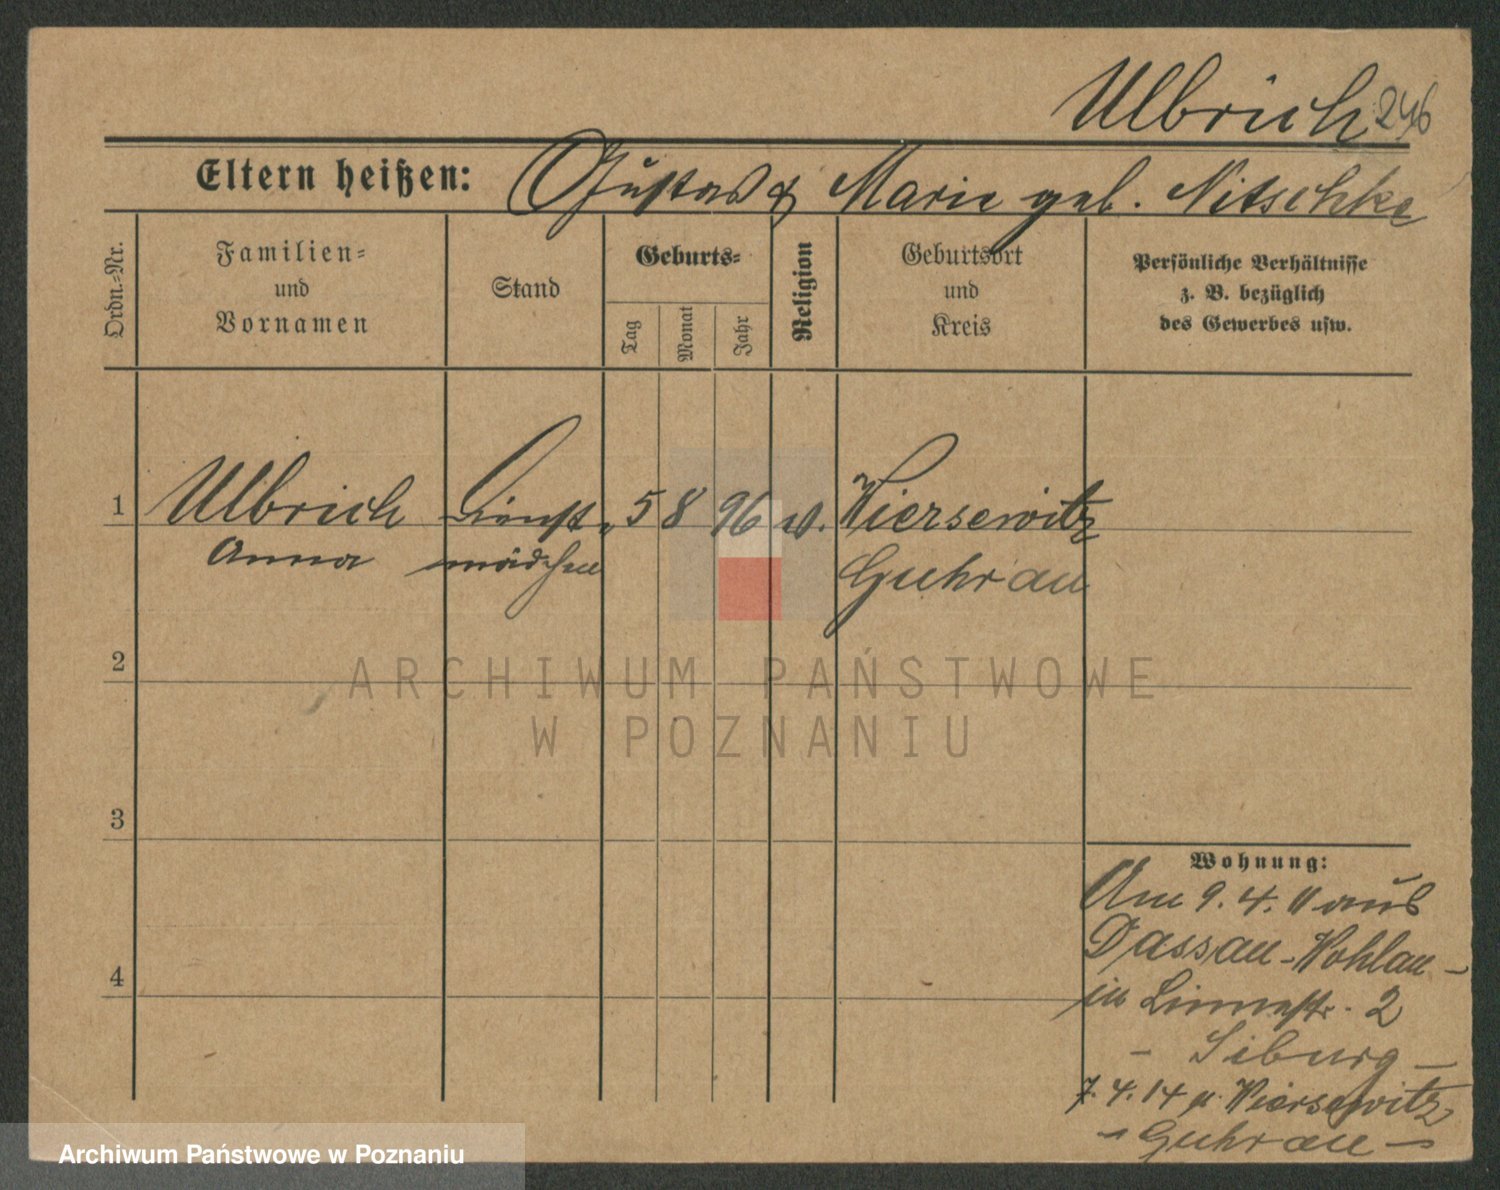 Ulbrich 246
Eltern heißen: Gustav & Marie geb. Nitschke
Ordn.-Nr.
Familien-
und
Vornamen
Stand
Geburts-
Tag
Monat
Jahr
Religion
Geburtsort
und
Kreis
Persönliche Verhältnisse
z. B. bezüglich
des Gewerbes usw.
1 Ulbrich Dienst- 5 8 96 Wiersewitz
Anna mädchen Guhrau
2
ARCHIWUM PAŃSTWOWE
W POZNANIU
3
Wohnung:
Am 9. 4. 11 aus
Dassau-Wohlau-
in Linnestr. 2
- Siburg -
4
7. 4. 14 n. Wiersewitz
- Guhrau -
Archiwum Państwowe w Poznaniu